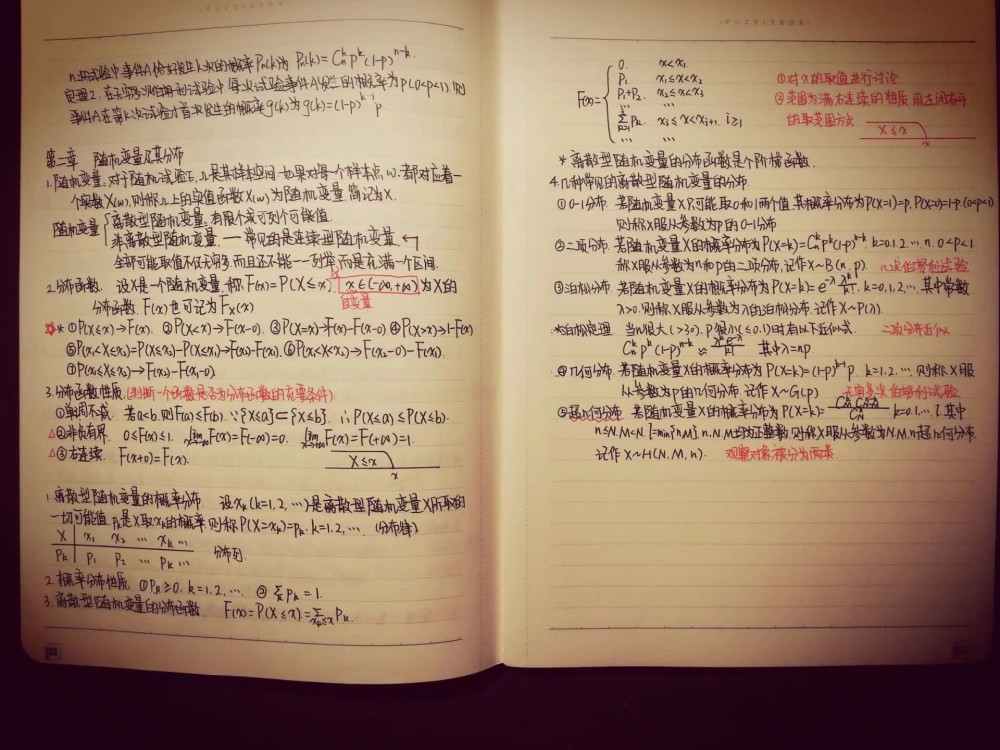 n次试验中事件A恰好发生k次的概率Pn(k)为 Pn(k)=Cₙᵏpᵏ(1-p)ⁿ⁻ᵏ.
定理2. 在无穷多次伯努利试验中,每次试验事件A发生的概率为p(0<p<1),则
事件A在第k次试验才首次发生的概率g(k)为g(k)=(1-p)ᵏ⁻¹p
第二章 随机变量及其分布
1.随机变量.对于随机试验E,Ω是其样本空间.如果对每个样本点ω.都对应着一
个实数X(ω),则称Ω上的实值函数X(ω)为随机变量.简记为X.
随机变量{离散型随机变量.有限个或可列个可能值.
非离散型随机变量.一常见的是连续型随机变量
全部可能取值不仅无穷多.而且还不能一一列举.而是充满一个区间.
2.分布函数. 设X是一个随机变量.称F(x)=P(X≤x) x∈(-∞,+∞)为X的
自变量
分布函数. F(x)也可记为F_X(x)
* ①P(X≤x)→F(x). ②P(X<x)→F(x-0). ③P(X=x)→F(x)-F(x-0) ④P(X>x)→1-F(x)
⑤P(x₁<X≤x₂)=P(X≤x₂)-P(X≤x₁)→F(x₂)-F(x₁). ⑥P(x₁<X<x₂)→F(x₂-0)-F(x₁).
⑦P(x₁≤X≤x₂)→F(x₂)-F(x₁-0).
3.分布函数性质.(判断一个函数是否为分布函数的充要条件)
①单周不减. 若a<b,则F(a)≤F(b). ∵{X≤a}⊂{X≤b}. ∴P(X≤a)≤P(X≤b).
△②非负有界. 0≤F(x)≤1. lim x→-∞ F(x)=F(-∞)=0. lim x→+∞ F(x)=F(+∞)=1.
△③右连续. F(x+0)=F(x).
X≤x
x
1.离散型随机变量的概率分布. 设xₖ(k=1,2,…)是离散型随机变量X所取的
一切可能值,pₖ是X取xₖ的概率.则称P(X=xₖ)=pₖ. k=1,2,…. (分布律)
X x₁ x₂ … xₖ …
Pₖ P₁ P₂ … Pₖ … 分布列.
2.概率分布性质. ①Pₖ≥0, k=1,2,…. ②∑ₖPₖ=1.
3.离散型随机变量的分布函数. F(x)=P(X≤x)=∑(xₖ≤x)Pₖ.
F(x)={0. x<x₁.
P₁ x₁≤x<x₂
P₁+P₂. x₂≤x<x₃
… …
∑Pₖ. xᵢ≤x<xᵢ₊₁. i≥1
… …
①对x的取值进行讨论
②范围为满右连续的性质.用左闭右开
的取范围方式.
X≤x
x
* 离散型随机变量的分布函数是个阶梯函数.
4.几种常见的离散型随机变量的分布.
①0-1分布. 若随机变量X只可能取0和1两个值.其概率分布为P(X=1)=p,P(X=0)=1-p(0<p<1)
则称X服从参数为p的0-1分布
②二项分布. 若随机变量X的概率分布为P(X=k)=Cₙᵏpᵏ(1-p)ⁿ⁻ᵏ k=0,1,2…n. 0<p<1.
称X服从参数为n和p的二项分布,记作X~B(n,p). n次伯努利试验
③泊松分布. 若随机变量X的概率分布为P(X=k)=e^-λ λᵏ/k!. k=0,1,2,…. 其中常数
λ>0.则称X服从参数为λ的泊松分布.记作X~P(λ).
*泊松定理. 当n很大(>30). p很小(≤0.1)时有以下近似式. 二项分布近似
Cₙᵏpᵏ(1-p)ⁿ⁻ᵏ≈λᵏe^-λ/k! 其中λ=np
④几何分布. 若随机变量X的概率分布为P(X=k)=(1-p)ᵏ⁻¹p. k=1,2,…. 则称X服
从参数为p的几何分布. 记作X~G(p) 无穷多次伯努利试验
⑤超几何分布. 若随机变量X的概率分布为P(X=k)= k=0,1,…l,其中
n≤N,M<N. l=min{n,M}. n,N,M均为正整数.则称X服从参数为N,M,n超几何分布.
记作X~H(N,M,n). 观察对象被分为两类.